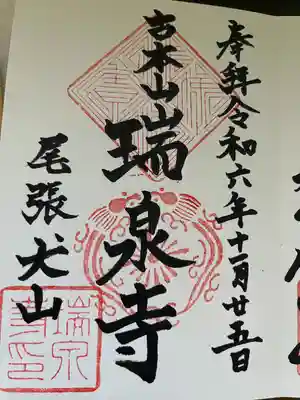 奉拝令和六年十一月廿五日
吉本山瑞泉寺
尾張犬山
瑞泉寺印